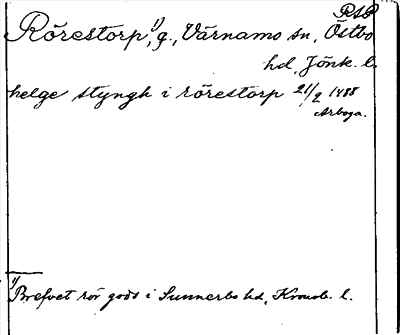 RAP
Rörestorp,¹⁾ g., Värnamo sn, Östbo
hd, Jönk. l.
helge styngh i rörestorp 21/2 1488
Arboga.
1) Brefvet rör gods i Sunnerbo hd, Kronob. l.